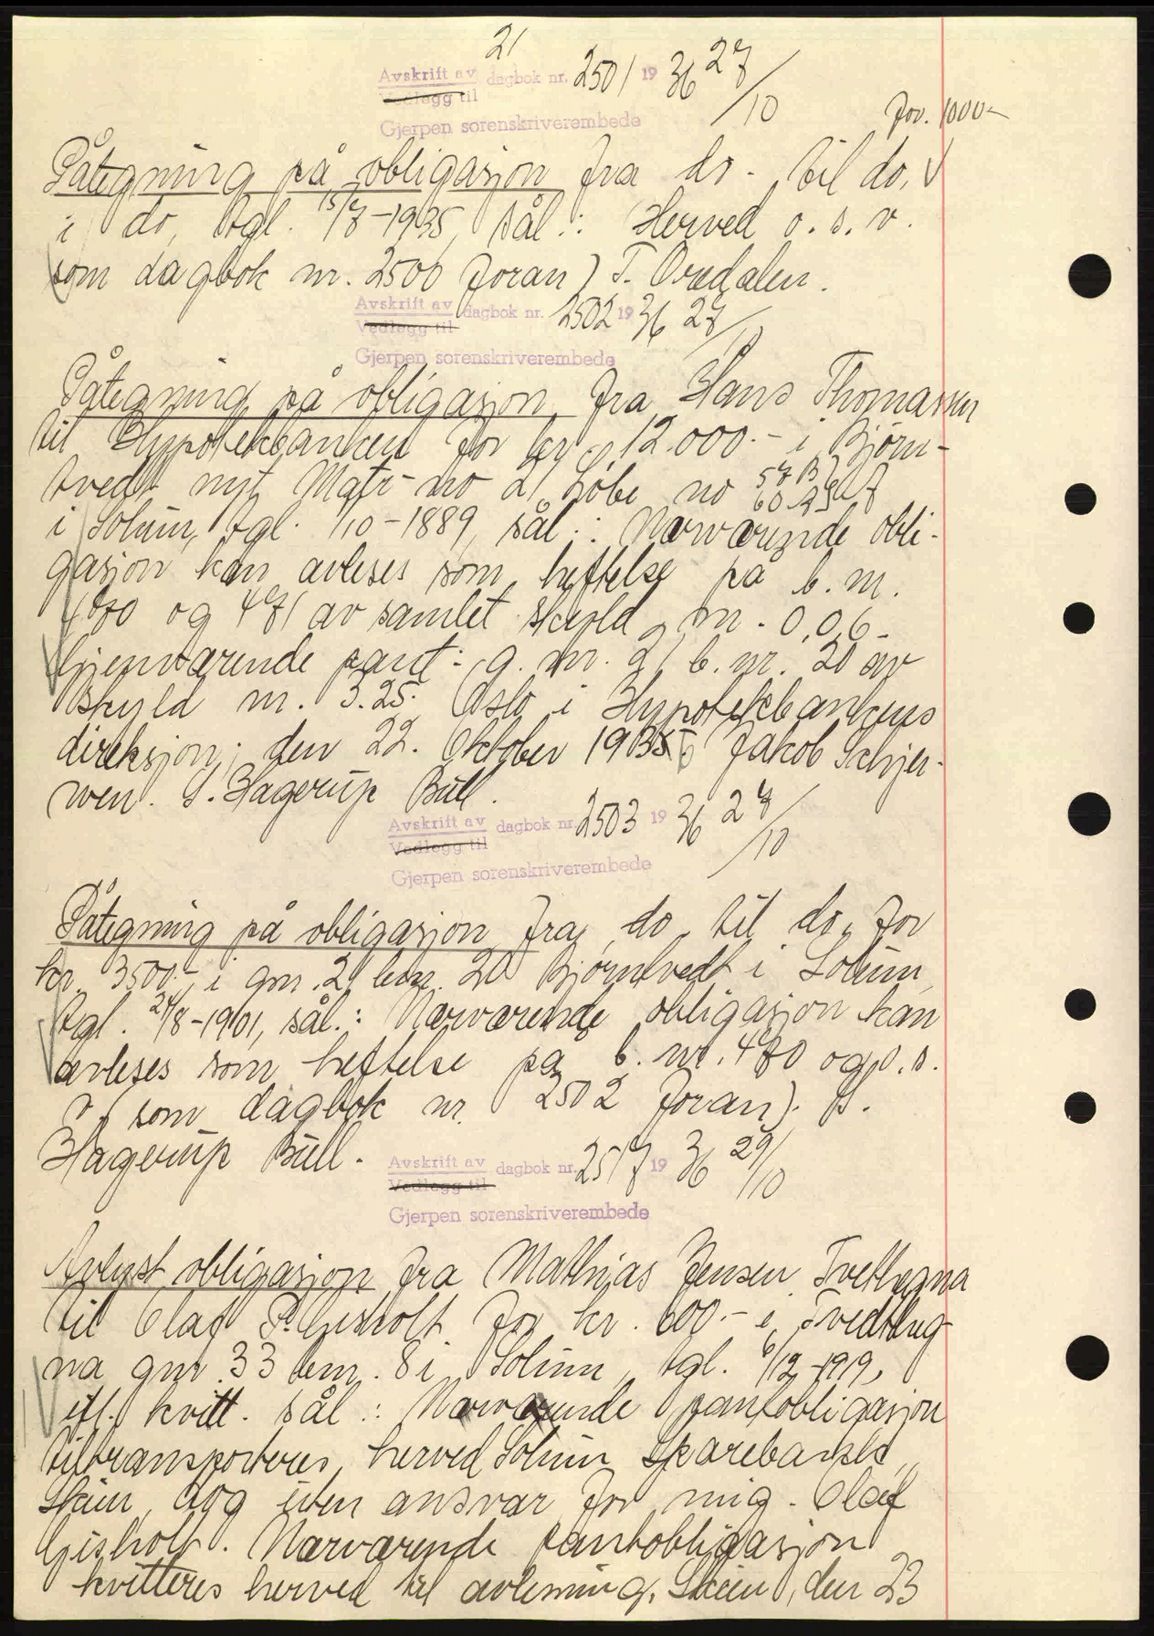 21
Avskrift av dagbok nr. 2501 1936 27/10
Vedlegg til
Gjerpen sorenskriverembede
for. 1000-
Påtegning på obligasjon fra do. til do,
i do, tgl. 15/7-1935, sål.: (Herved o. s. v.
som dagbok nr. 2500 foran) T. Ovedalen.
Avskrift av dagbok nr. 2502 1936 27/10
Vedlegg til
Gjerpen sorenskriverembede
Påtegning på obligasjon fra Hans Thomassen
til Hypotekbanken for kr. 12.000.- i Bjørn-
tvedt nyt Matr-no 21 Løbe no
i Solum, tgl. /10-1889, sål.: Nærværende obli-
gasjon kan avleses som heftelse på b. nr.
og 471 av samlet skyld m. 0,06-
Gjenværende pant: g. nr. 21 b. nr. 20 av
skyld m. 3.25. Oslo i Hypotekbankens
direksjon, den 22. Oktober 1936 Jakob Schjer-
wen. S. Hagerup Bull.
Avskrift av dagbok nr. 2503 1936 27/10
Vedlegg til
Gjerpen sorenskriverembede
Påtegning på obligasjon fra do. til do, for
kr. 3500.-, i gnr. 21 bnr. 20 Bjørntvedt i Solum,
tgl. 24/8-1901, sål.: Nærværende obligasjon kan
avleses som heftelse på b. nr. 470 og o. s.
v. (som dagbok nr. 2502 foran). S.
Hagerup Bull.
Avskrift av dagbok nr. 2517 1936 29/10
Vedlegg til
Gjerpen sorenskriverembede
Avlyst obligasjon fra Mathias Jensen Tvethegna
til Olaf P. Gisholt for kr. 600.- i Tvedtheg-
na gnr. 33 bnr. 8 i Solum, tgl. 6/12-1919,
ifl. kvitt. sål.: Nærværende pantobligasjon
tiltransporteres herved Solum Sparebank,
Skien, dog uten ansvar for mig. Olaf
Gisholt. Nærværende pantobligasjon
kvitteres herved til avlesning. Skien, den 23